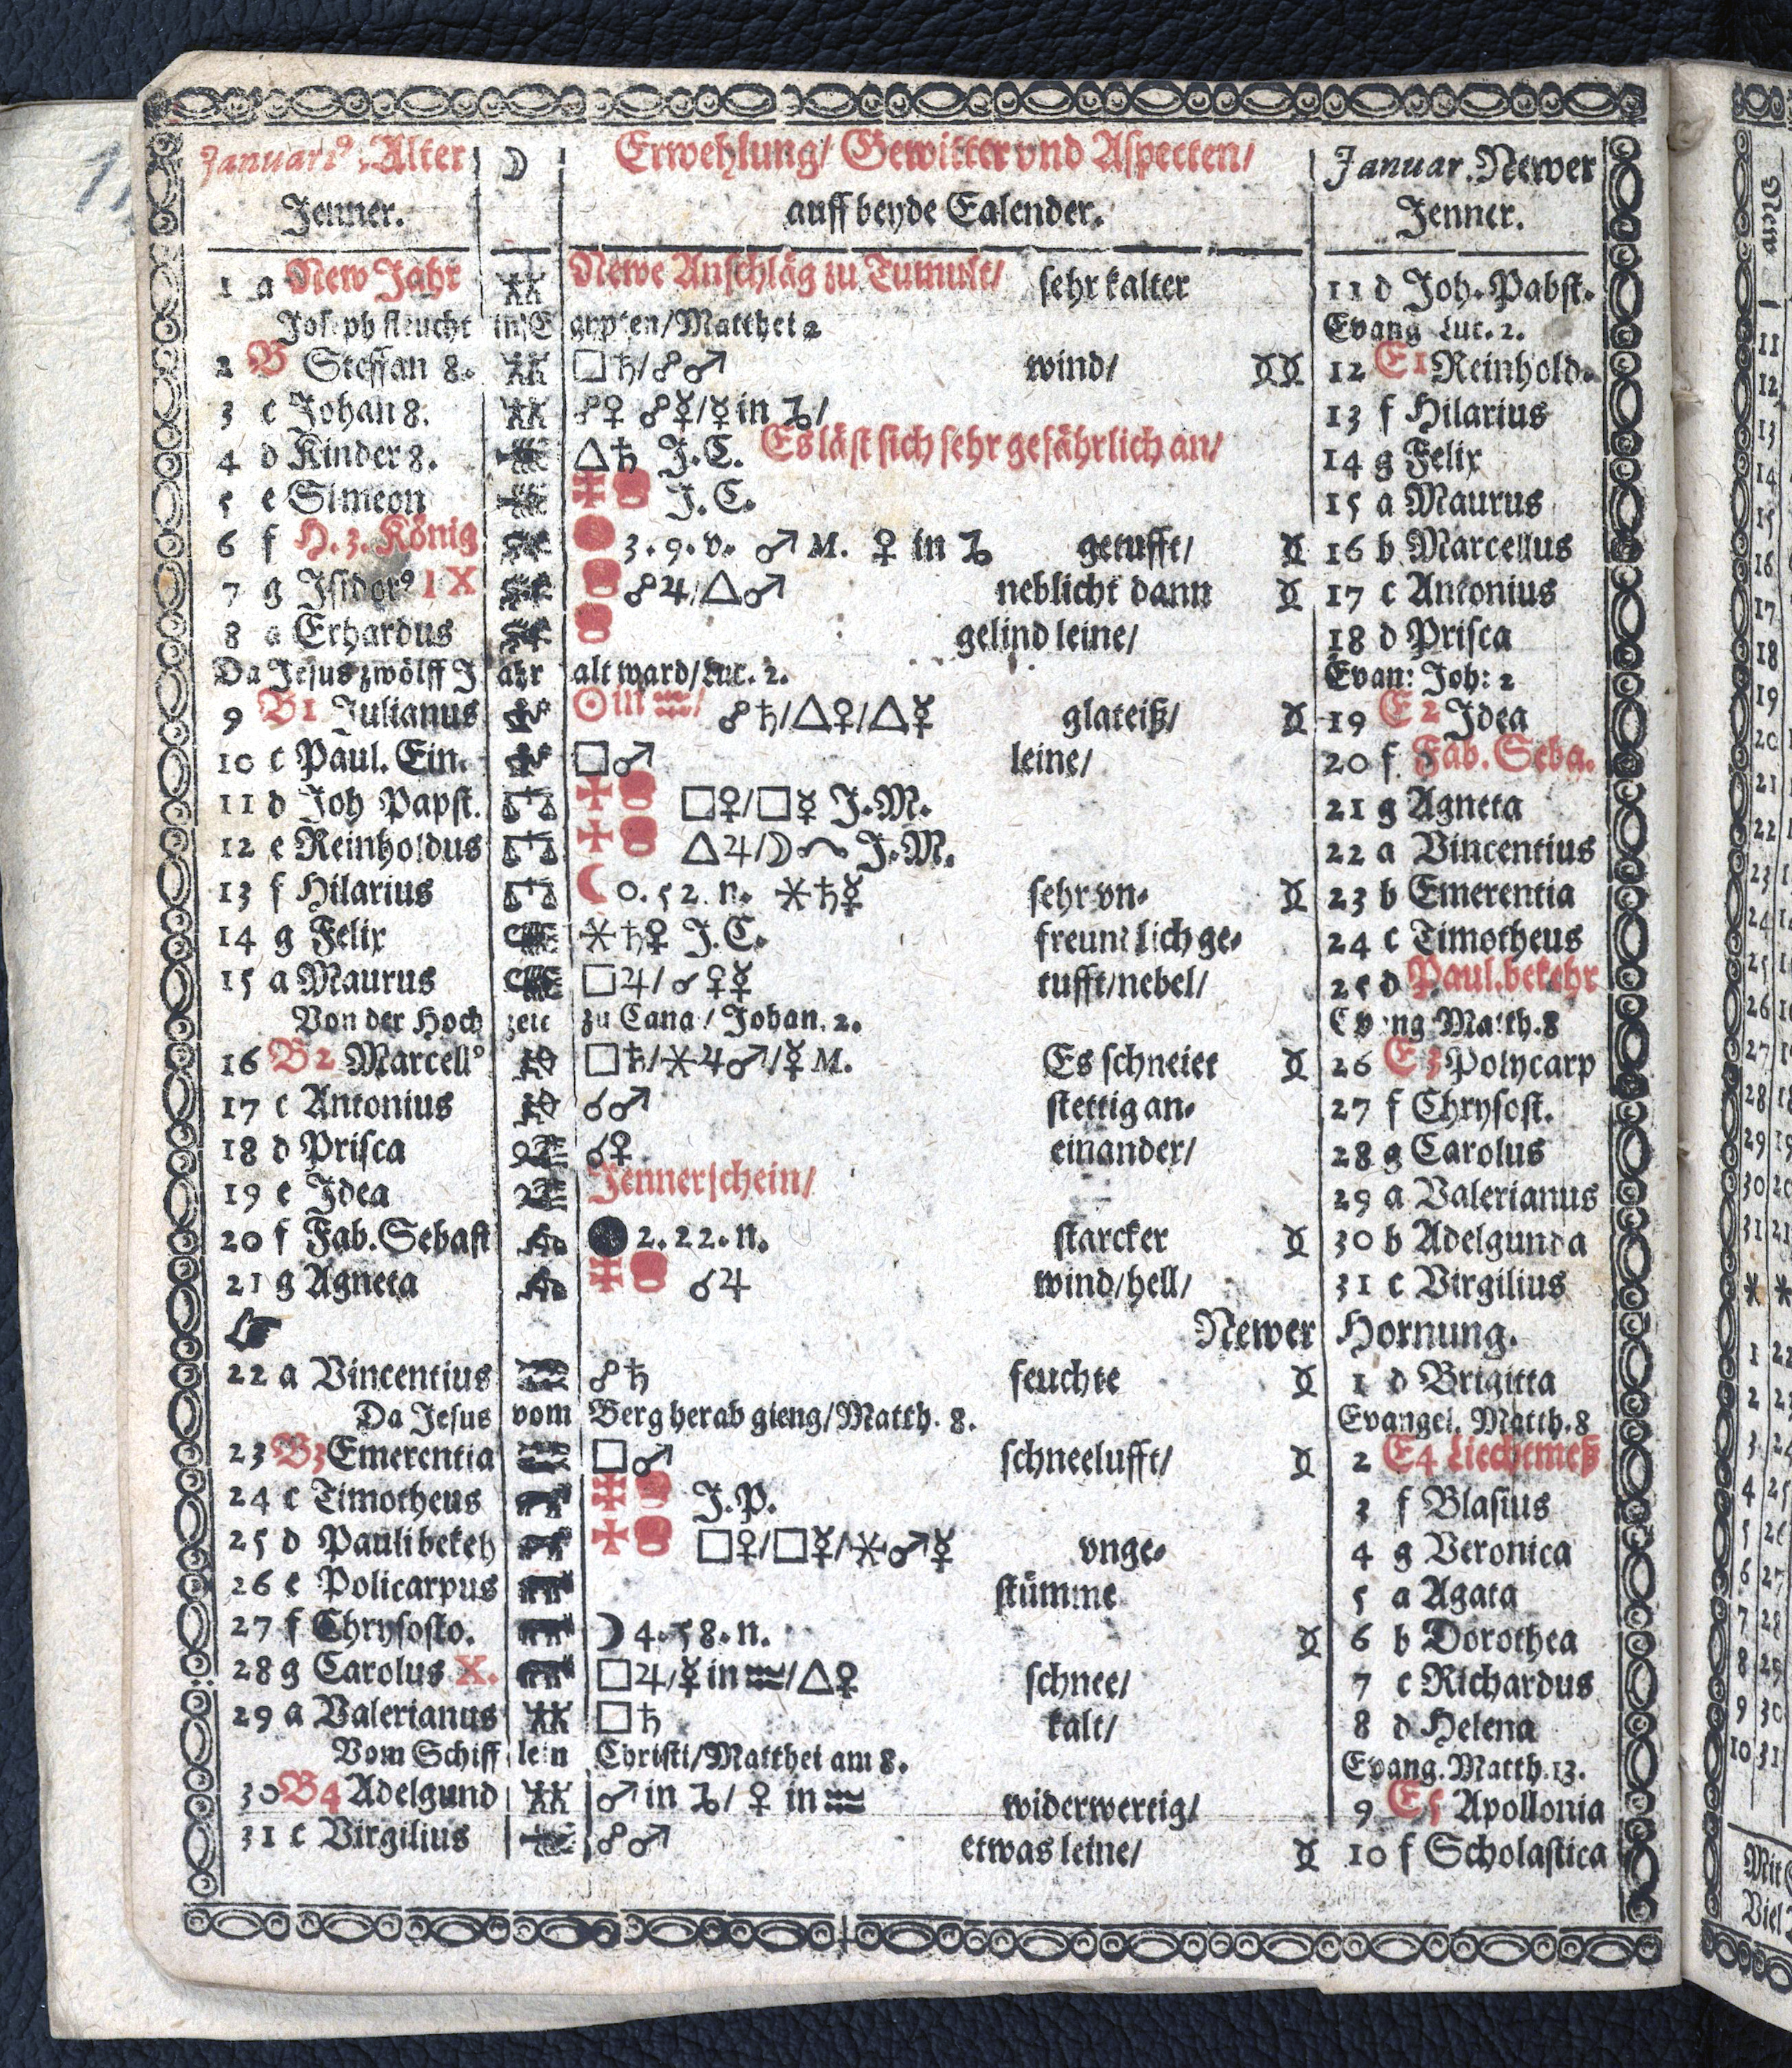 Januari⁹. Alter ☽ Erwehlung/ Gewitter vnd Aspecten/ Januar. Newer
Jenner. auff beyde Calender. Jenner.
1 a New Jahr Newe Anschläg zu Tumult/ sehr kalter 11 d Joh. Pabst.
Joseph fleucht in E gypten/Matthei 2 Evang Luc. 2.
2 B Steffan 8. □♄/☍♂ wind/ 12 E1 Reinhold.
3 c Johan 8. ☍♀ ☍☿/☿ in ♑/ 13 f Hilarius
4 d Kinder 8. △♄ J.C. Es läst sich sehr gefährlich an/ 14 g Felix
5 e Simeon J.C. 15 a Maurus
6 f H. 3. König 3. 9. v. ♂ M. ♀ in ♑ getufft/ 16 b Marcellus
7 g Isidor⁹ IX ☍♃/△♂ neblicht dann 17 c Antonius
8 a Erhardus gelind leine/ 18 d Prisca
Da Jesus zwölff J ahr alt ward/Luc. 2. Evan: Joh: 2
9 B1 Julianus ☉ in ♒/ ☍♄/△♀/△☿ glateiß/ 19 E2 Idea
10 c Paul. Ein. □♂ leine/ 20 f Fab. Seba.
11 d Joh Papst. □♀/□☿ J.M. 21 g Agneta
12 e Reinholdus △♃/☽ J.M. 22 a Vincentius
13 f Hilarius ☾ 0. 52. n. ⚹♄☿ sehr vn- 23 b Emerentia
14 g Felix ⚹♄♀ J.C. freuntlich ge- 24 c Timotheus
15 a Maurus □♃/☌♀☿ tufft/nebel/ 25 d Paul.bekehr
Von der Hoch zeit zu Cana/ Johan. 2. Evang Matth.8
16 B2 Marcell⁹ □♄/⚹♃♂/☿ M. Es schneiet 26 E3 Polycarp
17 c Antonius ☌♂ stettig an- 27 f Chrysost.
18 d Prisca ☌♀ einander/ 28 g Carolus
19 e Idea Jennerschein/ 29 a Valerianus
20 f Fab.Sebast ● 2. 22. n. starcker 30 b Adelgunda
21 g Agneta ☌♃ wind/hell/ 31 c Virgilius
☞ Newer Hornung.
22 a Vincentius ☍♄ feuchte 1 d Brigitta
Da Jesus vom Berg herab gieng/Matth. 8. Evangel. Matth.8
23 B3 Emerentia □♂ schneelufft/ 2 E4 Liechtmeß
24 c Timotheus J.P. 3 f Blasius
25 d Pauli bekeh □♀/□☿/⚹♂☿ vnge- 4 g Veronica
26 e Policarpus stümme 5 a Agata
27 f Chrysosto. ☽ 4. 58. n. 6 b Dorothea
28 g Carolus X. □♃/☿ in ♒/△♀ schnee/ 7 c Richardus
29 a Valerianus □♄ kalt/ 8 d Helena
Vom Schiff lein Christi/Matthei am 8. Evang. Matth. 13.
30 B4 Adelgund ♂ in ♑/ ♀ in ♒ widerwertig/ 9 E5 Apollonia
31 c Virgilius ☍♂ etwas leine/ 10 f Scholastica